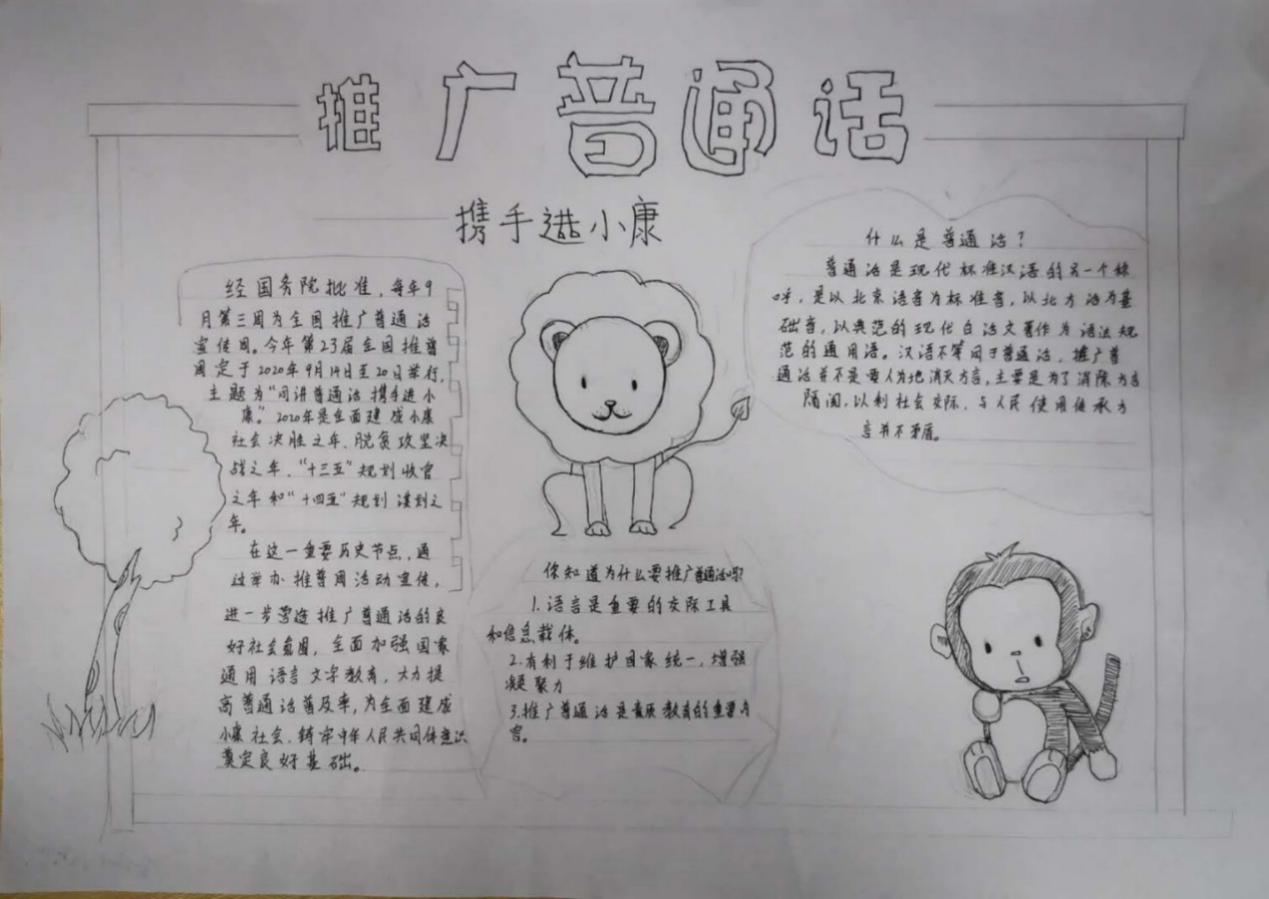 推广普通话
携手进小康
经国务院批准，每年9
月第三周为全国推广普通话
宣传周。今年第23届全国推普
周定于2020年9月14日至20日举行，
主题为“同讲普通话 携手进小
康”。2020年是全面建成小康
社会决胜之年、脱贫攻坚决
战之年、“十三五”规划收官
之年和“十四五”规划谋划之
年。
在这一重要历史节点，通
过举办推普周活动宣传，
进一步营造推广普通话的良
好社会氛围，全面加强国家
通用语言文字教育，大力提
高普通话普及率，为全面建成
小康社会、铸牢中华人民共同体意识
奠定良好基础。
你知道为什么要推广普通话吗?
1.语言是重要的交际工具
和信息载体。
2.有利于维护国家统一，增强
凝聚力
3.推广普通话是素质教育的重要内
容。
什么是普通话?
普通话是现代标准汉语的另一个称
呼，是以北京语音为标准音，以北方话为基
础音，以典范的现代白话文著作为语法规
范的通用语。汉语不等同于普通话，推广普
通话并不是要人为地消灭方言，主要是为了消除方言
隔阂，以利社会交际，与人民使用传承方
言并不矛盾。